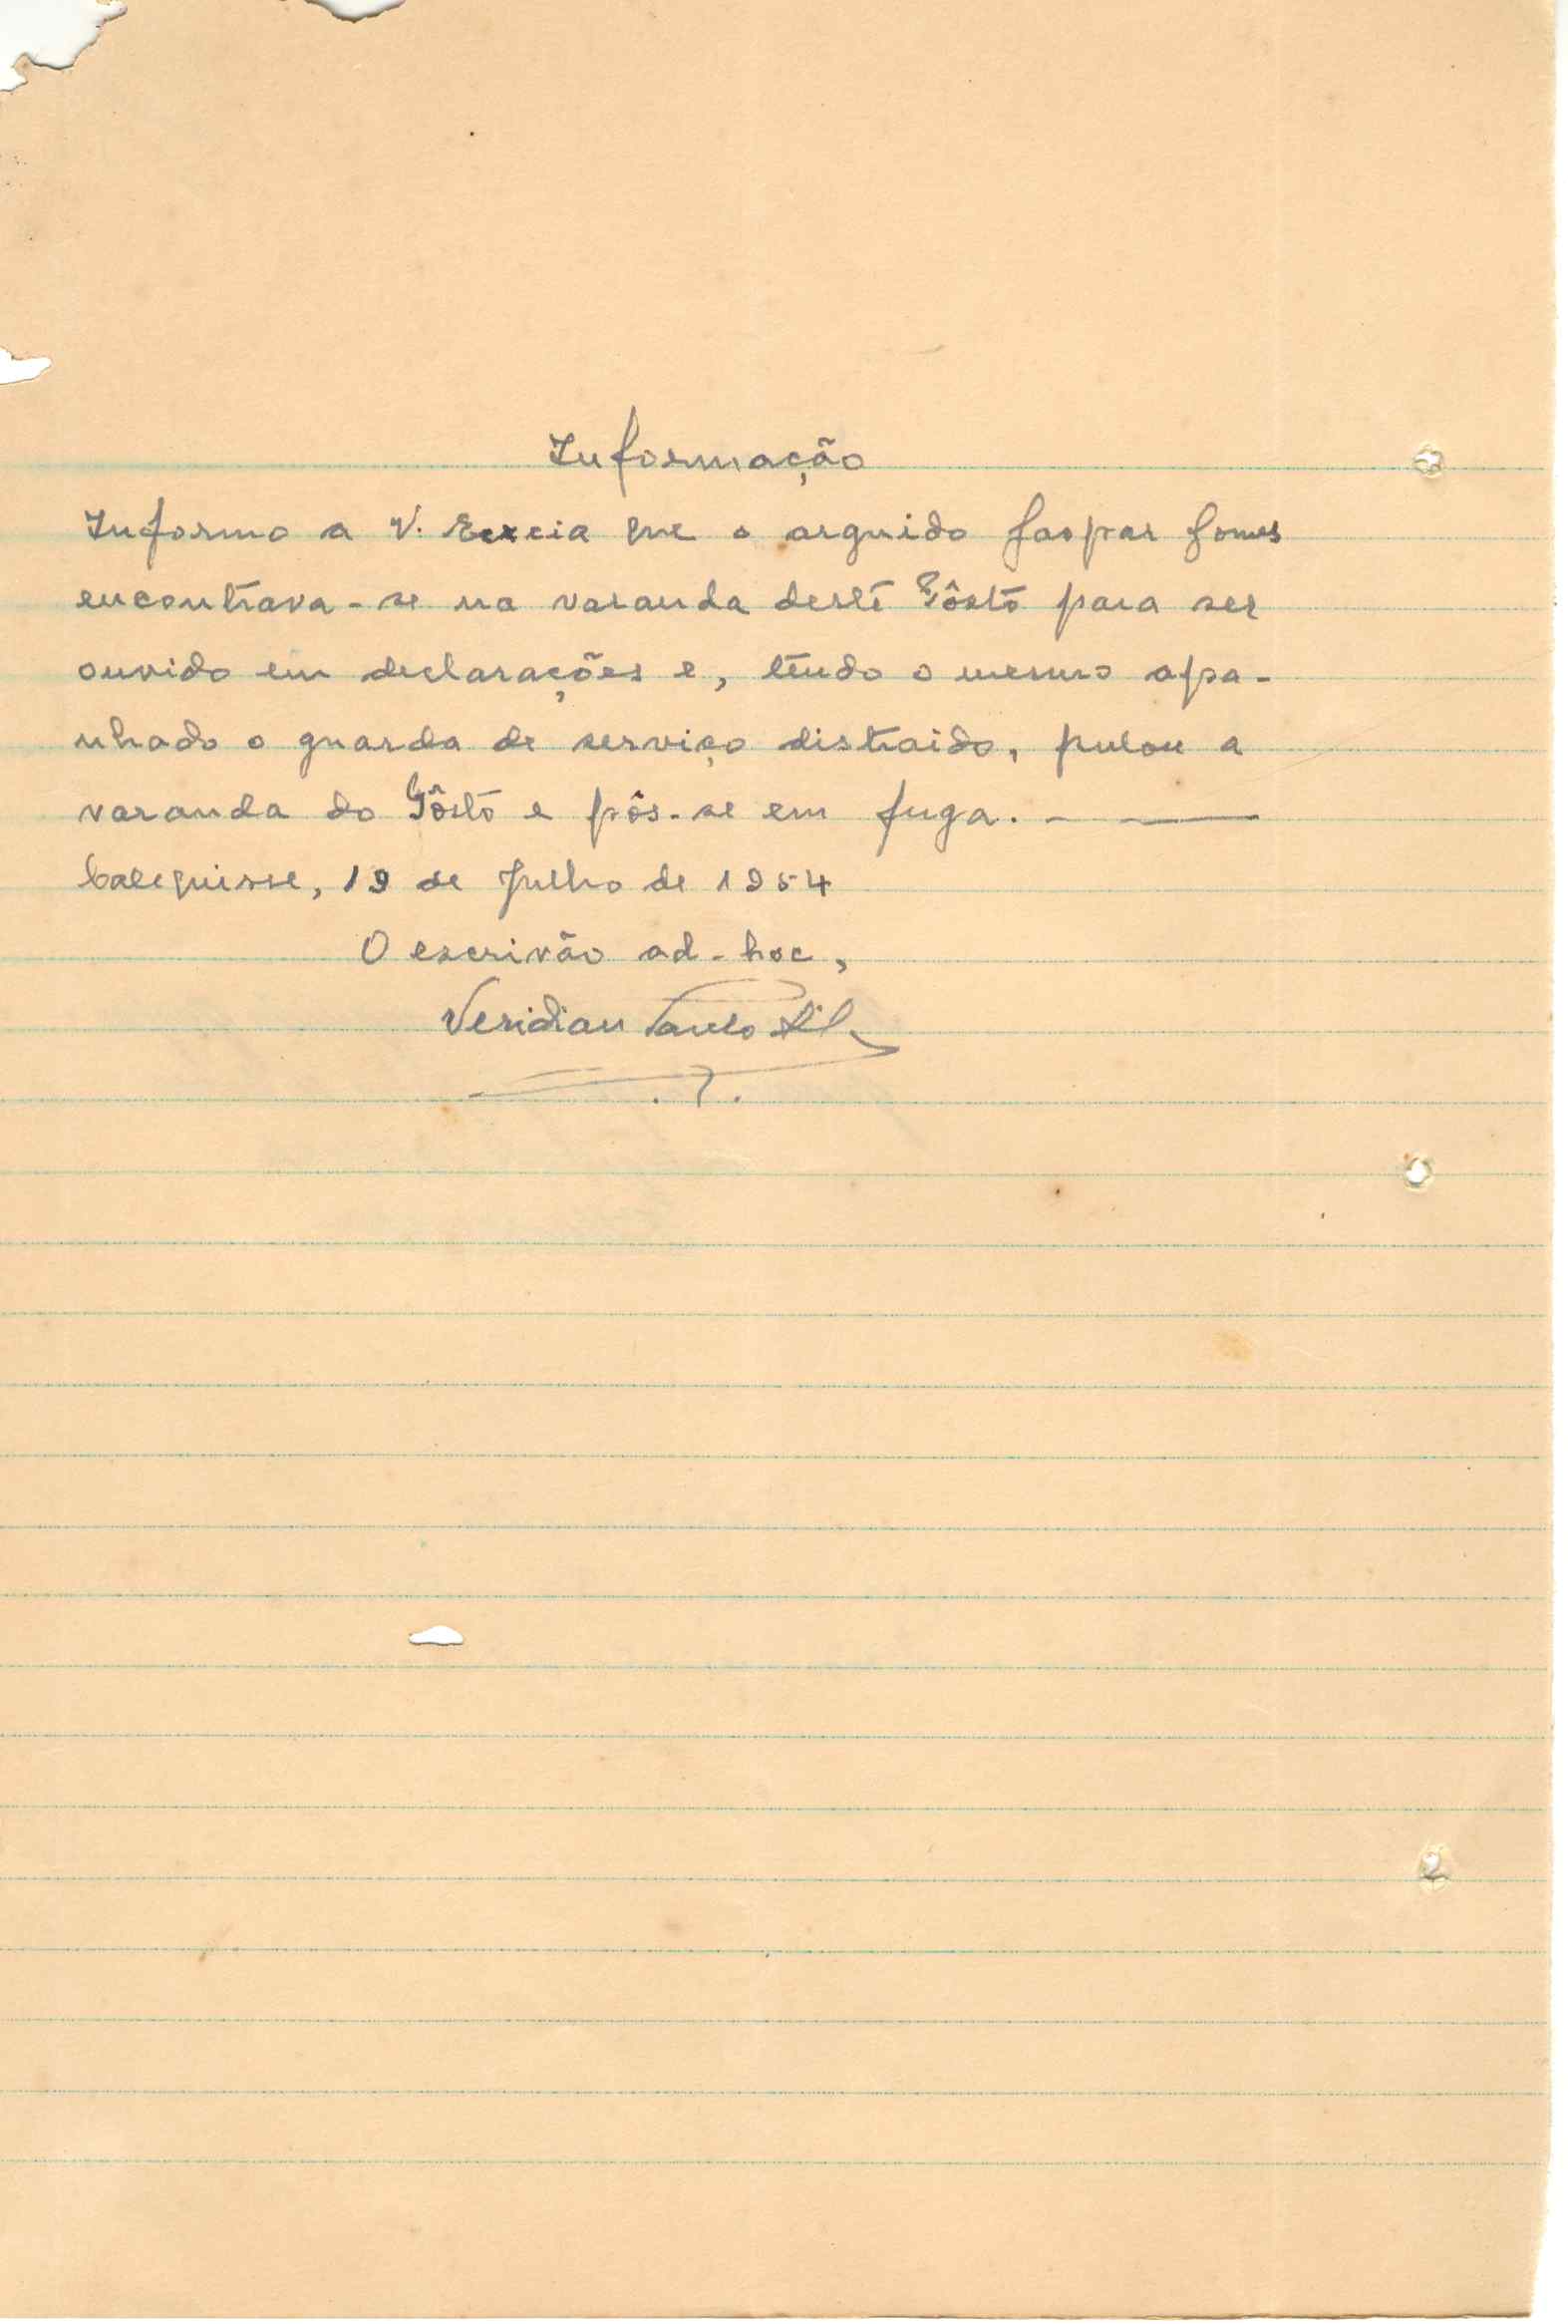 Informação
Informo a V. Excia que o arguido Gaspar Gomes
encontrava-se na varanda deste Pôsto para ser
ouvido em declarações e, tendo o mesmo apa-
nhado o guarda de serviço distraido, pulou a
varanda do Pôsto e pôs-se em fuga. — ——
Calequisse, 19 de Julho de 1954
O escrivão ad-hoc,
Veridian Paulo